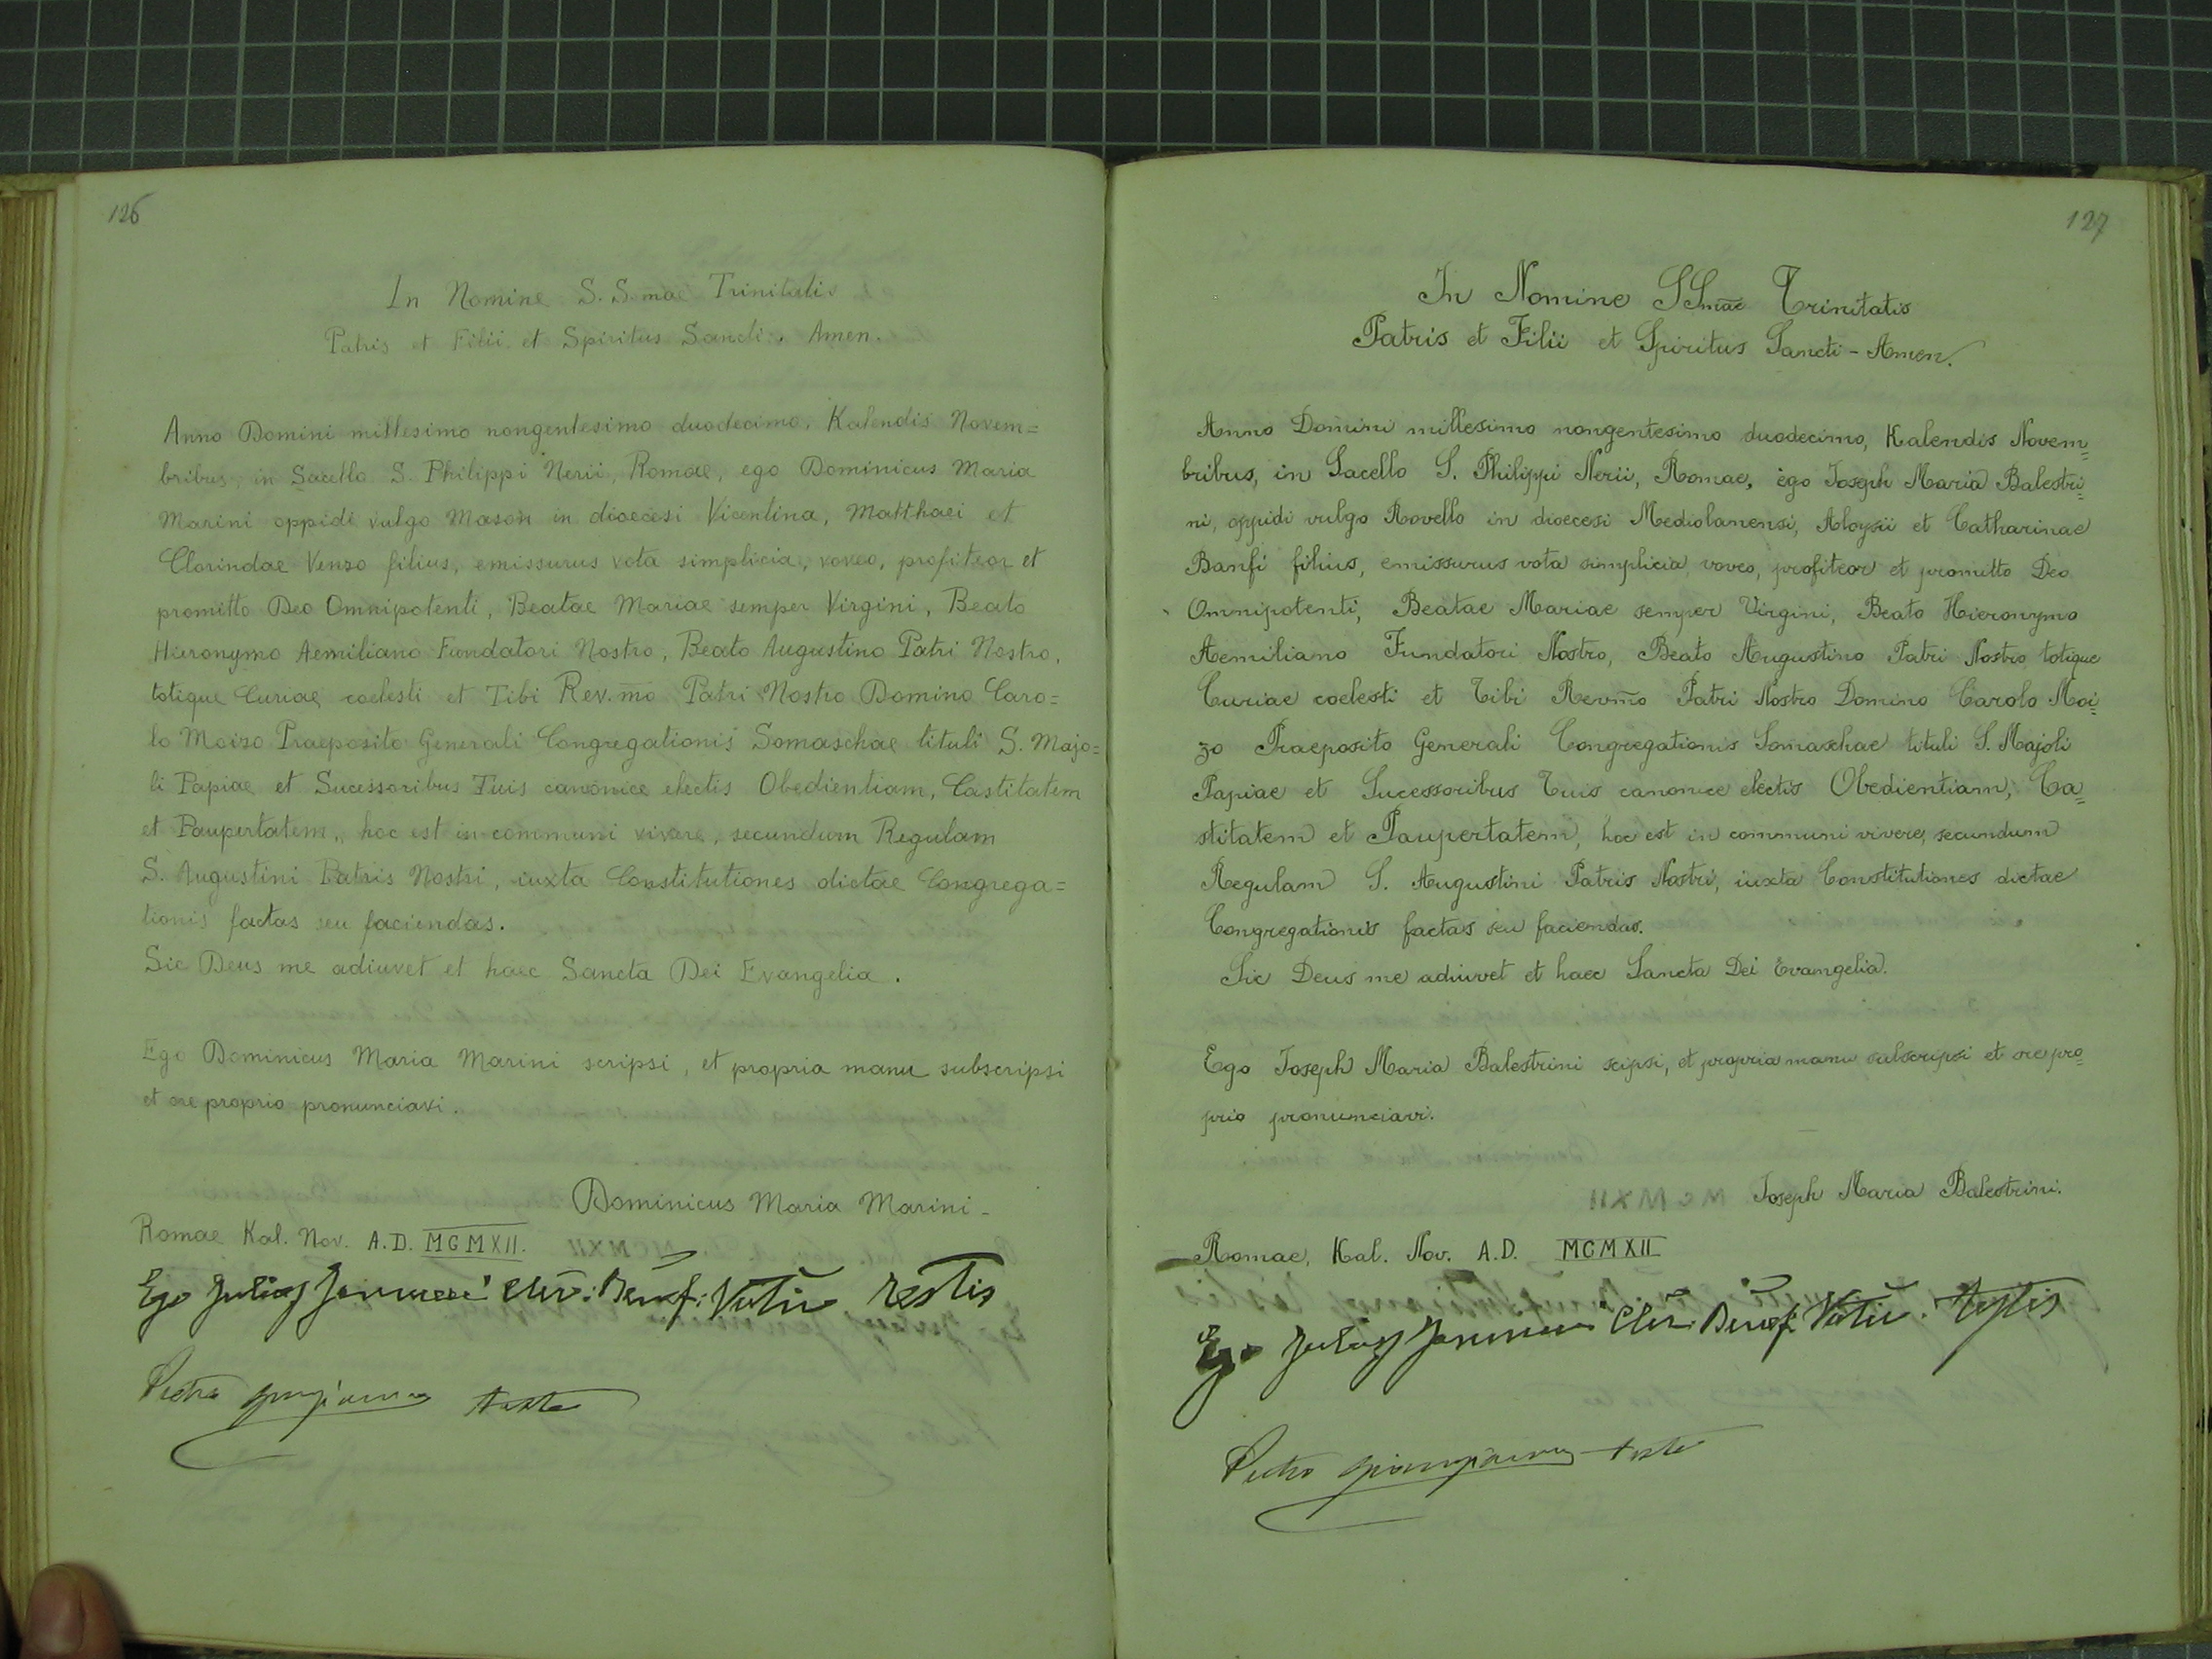 126
In Nomine S. S.mae Trinitatis
Patris et Filii et Spiritus Sancti. Amen.
Anno Domini millesimo nongentesimo duodecimo, Kalendis Novem=
bribus, in Sacello S. Philippi Nerii, Romae, ego Dominicus Maria
Marini oppidi vulgo Mason in dioecesi Vicentina, Matthaei et
Clorindae Venzo filius, emissurus vota simplicia, voveo, profiteor et
promitto Deo Omnipotenti, Beatae Mariae semper Virgini, Beato
Hieronymo Aemiliano Fundatori Nostro, Beato Augustino Patri Nostro,
totique Curiae coelesti et Tibi Rev.mo Patri Nostro Domino Caro=
lo Moizo Praeposito Generali Congregationis Somaschae tituli S. Majo=
li Papiae et Sucessoribus Tuis canonice electis Obedientiam, Castitatem
et Paupertatem, hoc est in communi vivere, secundum Regulam
S. Augustini Patris Nostri, iuxta Constitutiones dictae Congrega=
tionis factas seu faciendas.
Sic Deus me adiuvet et haec Sancta Dei Evangelia.
Ego Dominicus Maria Marini scripsi, et propria manu subscripsi
et ore proprio pronunciavi.
Dominicus Maria Marini
Romae Kal. Nov. A.D. MCMXII.
Ego Julius testis
Pietro teste
127
In Nomine SSmae Trinitatis
Patris et Filii et Spiritus Sancti - Amen.
Anno Domini millesimo nongentesimo duodecimo, Kalendis Novem=
bribus, in Sacello S. Philippi Nerii, Romae, ego Joseph Maria Balestri=
ni, oppidi vulgo Rovello in dioecesi Mediolanensi, Aloysii et Catharinae
Banfi filius, emissurus vota simplicia, voveo, profiteor et promitto Deo
Omnipotenti, Beatae Mariae semper Virgini, Beato Hieronymo
Aemiliano Fundatori Nostro, Beato Augustino Patri Nostro, totique
Curiae coelesti et Tibi Revmo Patri Nostro Domino Carolo Moi=
zo Praeposito Generali Congregationis Somaschae tituli S. Majoli
Papiae et Sucessoribus Tuis canonice electis Obedientiam, Ca=
stitatem et Paupertatem, hoc est in communi vivere, secundum
Regulam S. Augustini Patris Nostri, iuxta Constitutiones dictae
Congregationis factas seu faciendas.
Sic Deus me adiuvet et haec Sancta Dei Evangelia.
Ego Joseph Maria Balestrini scipsi, et propria manu subscripsi et ore pro=
prio pronunciavi.
Joseph Maria Balestrini.
Romae, Kal. Nov. A.D. MCMXII
Ego Julius testis
Pietro teste